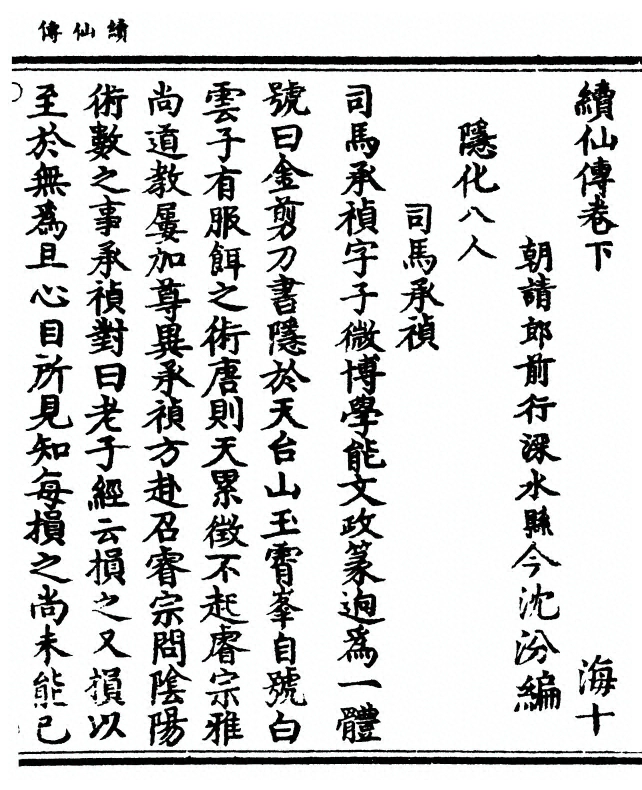 續仙傳
續仙傳卷下 海十
朝請郎前行深水縣令沈汾編
隱化八人
司馬承禎
司馬承禎字子微博學能文政篆逈爲一體
號曰金剪刀書隱於天台山玉霄峯自號白
雲子有服餌之術唐則天累徵不起睿宗雅
尚道教屢加尊異承禎方赴召睿宗問陰陽
術數之事承禎對曰老子經云損之又損以
至於無爲且心目所見知每損之尚未能已